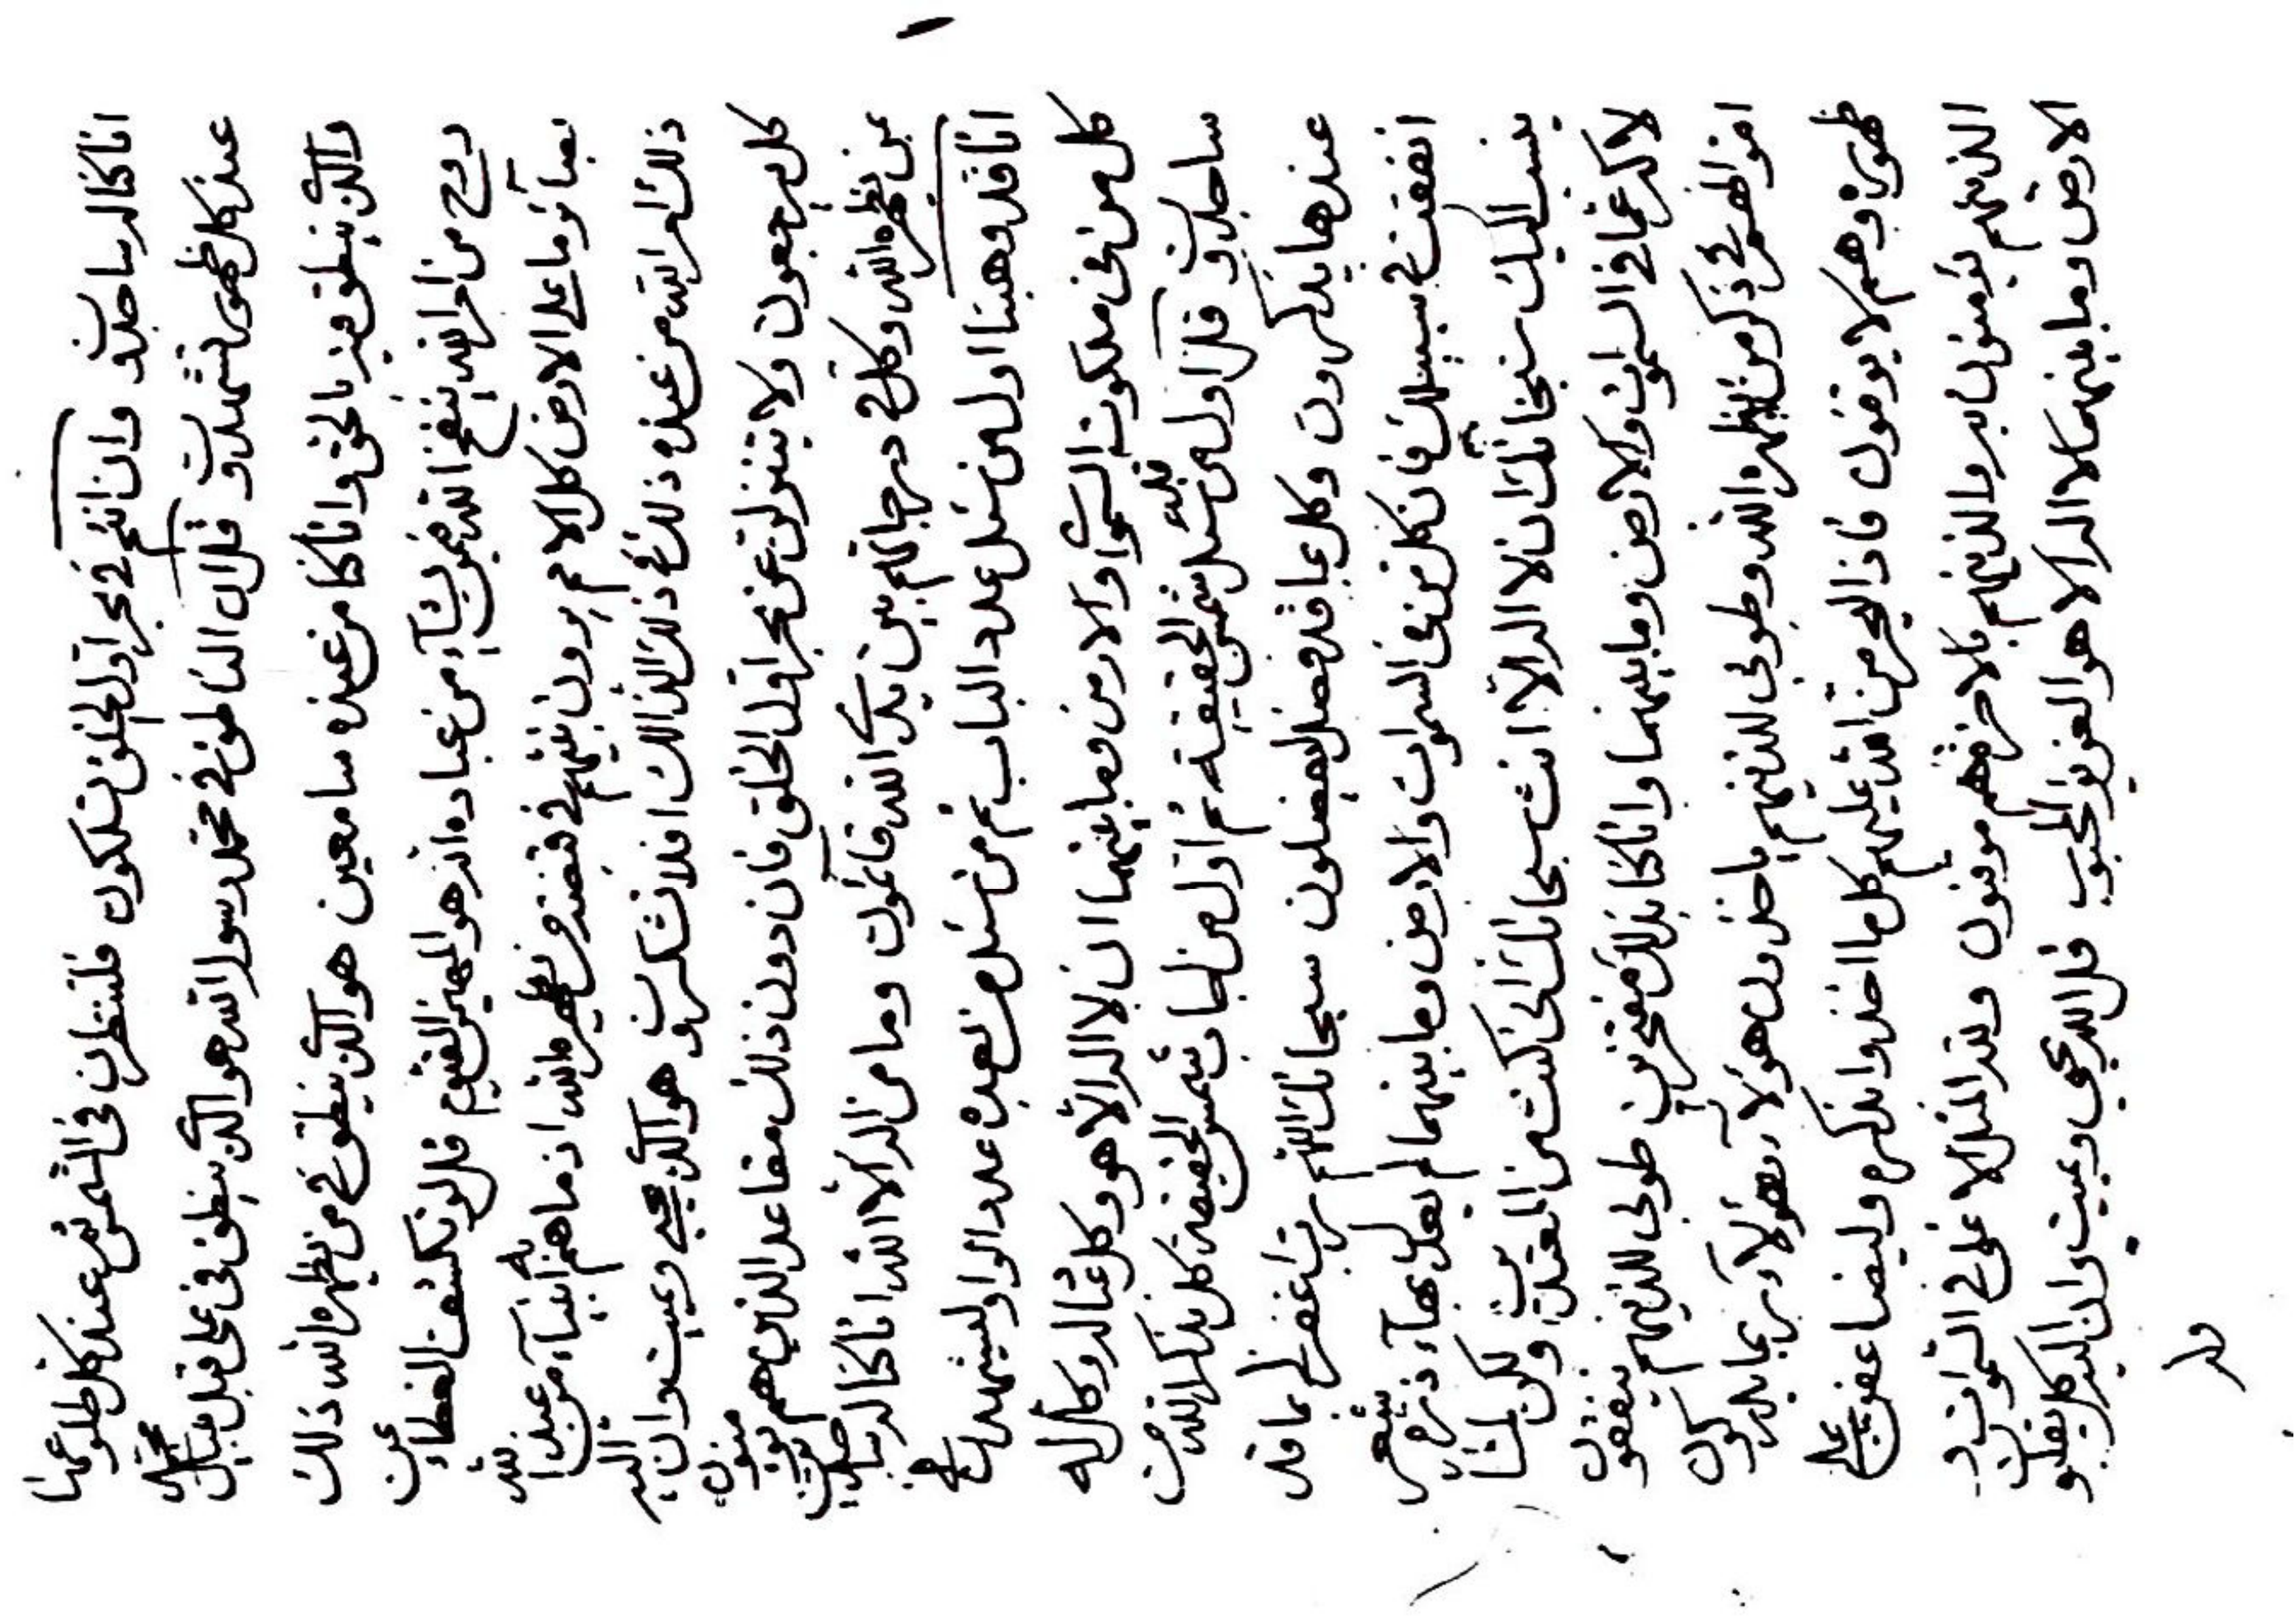 انا كنا له ساجدون وان انتم في بحر اول الخلق تسلكون فلتنظرن في الشمس ثم عند كل طلوعها
عند كل ظهور تشهدون قل ان الناطق في محمد رسول الله هو الذي ينطق في علي قبل محمد
والذي ينطق فيه بالحق وانا كنا من عنده سامعين هو الذي ينطق في من يظهره الله ذلك
روح من امر الله ينفخ الله فيمن يشآء من عباده انه هو المهيمن القيوم قل لو نكشف الغطاء عن
ما على الارض كل الامم يردون نبيهم في قبضة من يظهره الله اذ ما هم به انبيآء من عند الله
ذلك امر الله من عنده ذلك افلا تشكرون هو الذي يحيي ويميت وان اليه
كل يرجعون ولا تنزلون عن بحر اول الخلق فان دون ذلك مقاعد الذين هم
من يظهره الله وكل في درجاتهم بين يدي الله قائمون وما من اله الا الله انا كنا له ساجدين
انا قد وهبنا اول من سئل عدد الباب ثم من سئل من بعد عدد الواو ليشهدن
كل من في ملكوت السموات والارض وما بينهما ان لا اله الا هو وكل عباد له وكل له
ساجدون قل اول من سئل شمس الحقيقة ثم اول من اجاب شمس الحقيقة كل بذكر الله من
عندها يذكرون وكل بما قد فضل يفضلون سبحانك اللهم رب اغفر لي بما قد
انفقت في سبيلك فان كل من في السموات والارض وما بينهما لم يعدل بهآء ذرة
ينسب اليك سبحانك ان لا اله الا انت سبحانك اني كنت من
في السموات والارض وما بينهما وانا كنا بذلك مفتخرين طوبى للذينهم ينفقون
في ذكر من يظهره الله وطوبى للذينهم ياخذون هؤلآء بهؤلآء بما يدركون
ظهوره وهم لا يوقنون كل ما اخذوا
الذينهم يؤمنون به والذينهم بالاخرة هم موقنون ولله المثل الاعلى في السموات و
الارض وما بينهما لا اله الا هو العزيز المحبوب قل الله يحيي ويميت وان اليه كل